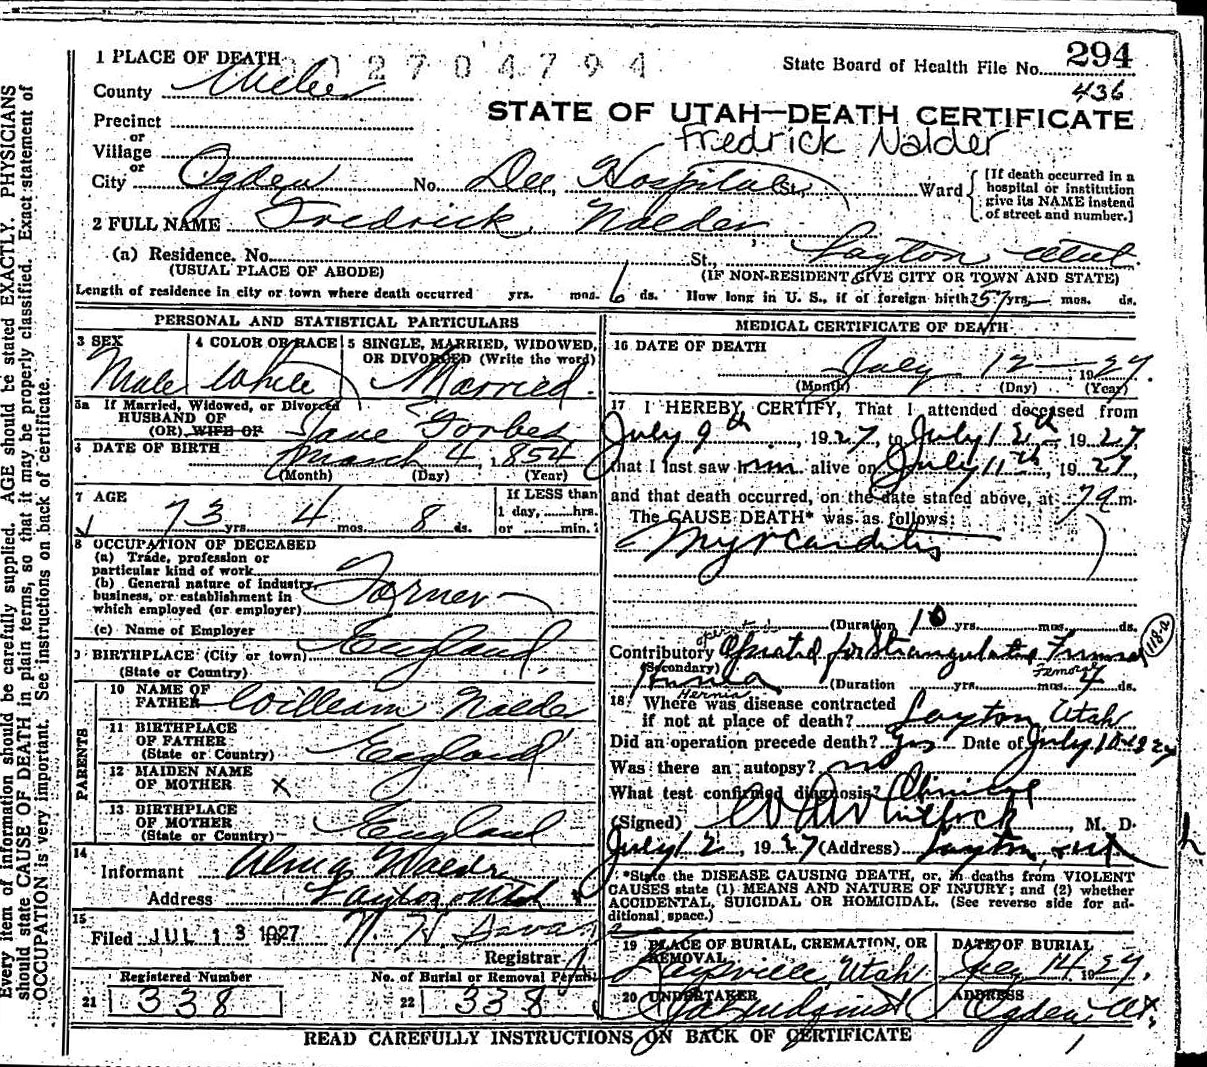 1 PLACE OF DEATH 2704794
State Board of Health File No. 294
County Weber
436
STATE OF UTAH—DEATH CERTIFICATE
Precinct
or
Village
Fredrick Nalder
or
City Ogden No. Dee Hospital St., Ward
[If death occurred in a hospital or institution give its NAME instead of street and number.]
2 FULL NAME Fredrick Nalder
(a) Residence. No. St., Layton Utah.
(USUAL PLACE OF ABODE) (IF NON-RESIDENT GIVE CITY OR TOWN AND STATE)
Length of residence in city or town where death occurred yrs. mos. 6 ds. How long in U. S., if of foreign birth? 57 yrs. — mos. ds.
PERSONAL AND STATISTICAL PARTICULARS
3 SEX Male
4 COLOR OR RACE White
5 SINGLE, MARRIED, WIDOWED, OR DIVORCED (Write the word) Married.
5a If Married, Widowed, or Divorced
HUSBAND OF
(OR) WIFE OF Jane Forbes
6 DATE OF BIRTH March 4, 1854
(Month) (Day) (Year)
7 AGE
73 yrs. 4 mos. 8 ds.
If LESS than 1 day, ......hrs. or ......min.
8 OCCUPATION OF DECEASED
(a) Trade, profession or
particular kind of work
(b) General nature of industry,
business, or establishment in
which employed (or employer) Farmer
(c) Name of Employer
9 BIRTHPLACE (City or town) England.
(State or Country)
PARENTS
10 NAME OF
FATHER William Nalder
11 BIRTHPLACE
OF FATHER
(State or Country) England
12 MAIDEN NAME
OF MOTHER X
13 BIRTHPLACE
OF MOTHER
(State or Country) England
14
Informant Alma Nalder
Address Layton Utah
15
Filed JUL 13 1927 19
Registrar
Registered Number No. of Burial or Removal Permit
21 338 22 338
MEDICAL CERTIFICATE OF DEATH
16 DATE OF DEATH
July 12 — 1927.
(Month) (Day) (Year)
17 I HEREBY CERTIFY, That I attended deceased from
July 9th, 1927, to July 12th 1927
that I last saw him alive on July 11th, 1927,
and that death occurred, on the date stated above, at 7 a m.
The CAUSE DEATH* was as follows:
Myocarditis
(Duration 10 yrs. mos. ds.
118-a
Contributory Operated for Strangulated Femoral
(Secondary) Hernia
Hernia Femoral
(Duration yrs. mos. 4 ds.
18 Where was disease contracted
if not at place of death? Layton Utah
Did an operation precede death? Yes Date of July 10-1927
Was there an autopsy? no
What test confirmed diagnosis? Clinical
(Signed) M. D.
July 12, 1927 (Address) Layton, Ut
*State the DISEASE CAUSING DEATH, or, in deaths from VIOLENT
CAUSES state (1) MEANS AND NATURE OF INJURY; and (2) whether
ACCIDENTAL, SUICIDAL OR HOMICIDAL. (See reverse side for ad-
ditional space.)
19 PLACE OF BURIAL, CREMATION, OR REMOVAL DATE OF BURIAL
Kaysville, Utah July 14 1927.
20 UNDERTAKER ADDRESS
Ogden, Ut.
READ CAREFULLY INSTRUCTIONS ON BACK OF CERTIFICATE
Every item of information should be carefully supplied. AGE should be stated EXACTLY. PHYSICIANS
should state CAUSE OF DEATH in plain terms, so that it may be properly classified. Exact statement of
OCCUPATION is very important. See instructions on back of certificate.